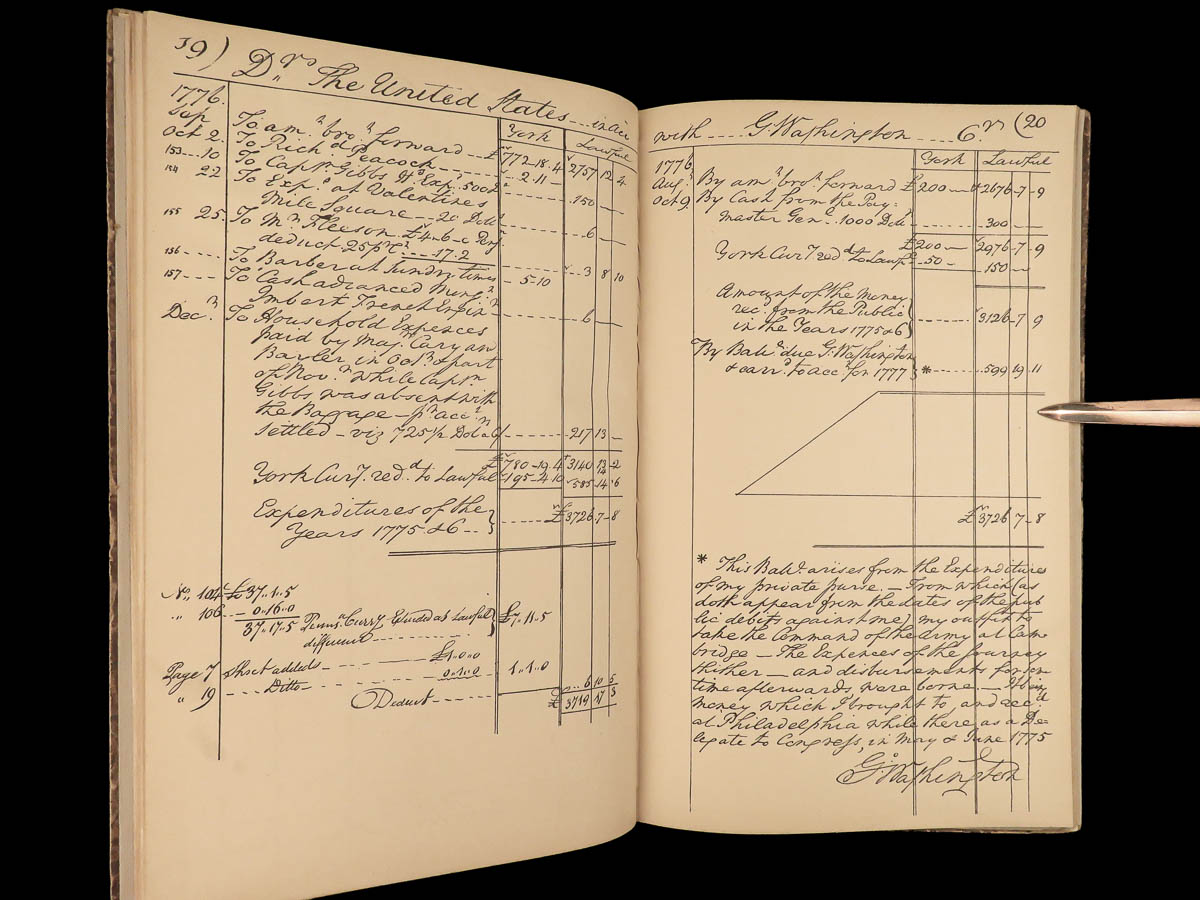 19) Drs The United States --- in acc
York Lawful
1776.
Sep To amt brot forward --- £ 772-18-4 2757 12 4
Oct 2. To Richd Peacock --- 2-11-
153 -- 10 To Capn Gibbs Hd Exps 500 D 150
154 22 To Exps at Valentines
Mile Square -- 20 Dolls 6
155 25. To Mr Fleeson £4-6-0 Pens
deduct 25 pr Ct -- 17.2 3 8 10
156 ---- To Barber at Sundry times 5-10
157 ---- To Cash advanced Monsr
Imbert French Engin 6
Decr To Household Expences
paid by Majr Cary an
Barler in Octr & part
of Novr while Captn
Gibbs was absent with
the Baggage - pr acct
settled - viz 725½ Dol 217 13
£ 780-19-4 3140 13 2
York Curry redd to Lawful 195-4-10 585-14-6
Expenditures of the
Years 1775 & 6 --- £3726-7-8
No. 104 £37.1.5
" 106 -- 0..16..0
37..17..5 Penns. Curry Extended as Lawful
different £7..11..5
Page 7 short added £1..0..0
" 19 ---- Ditto 0..1..0 1..1..0
Deduct 6 10 5
£ 3719 17 3
with ---- G. Washington ---- Cr (20
York Lawful
1776
Augt By amt brot forward £200 -- 2676-7-9
Oct 9. By Cash from the Pay:
master Genl. 1000 Doll 300
£200 -- 2976-7-9
York Curry redd to Lawf 50 -- 150
Amount of the Money
rec. from the Public
in the Years 1775 & 6 3126-7 9
By Bale due G. Washington
& carrd to accs for 1777 * 599 19 11
£3726 7-8
* This Bale arises from the Expenditures
of my private purse. -- From which (as
doth appear from the dates of the pub
lic debits against me) my outfit to
take the Command of the Army at Cam
bridge -- The Expences of the Journey
thither -- and disbursements for som
time afterwards, were borne. --
money which I brought to, and recd
at Philadelphia while there as a De-
legate to Congress, in May & June 1775
Go Washington